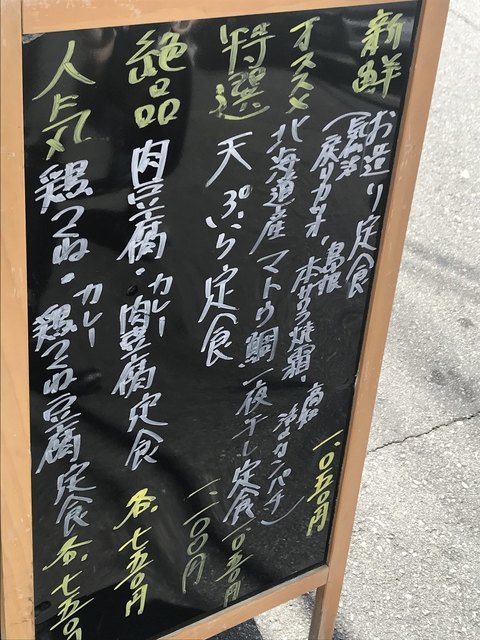 新鮮 お造り定食 一、〇五〇円
(気仙沼 戻りカツオ、本サワラ焼霜、高知 活〆カンパチ)
オススメ 北海道産マトウ鯛一夜干し定食 一、〇五〇円
特選 天ぷら定食 一、一〇〇円
絶品 肉豆腐・カレー肉豆腐定食 各、七五〇円
人気 鶏つくね・カレー鶏つくね豆腐定食 各、七五〇円